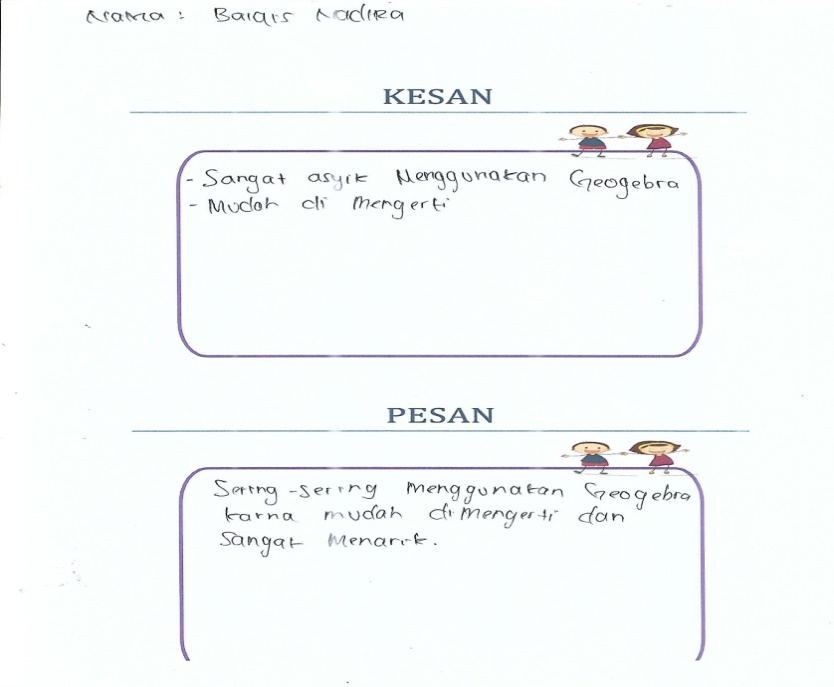 Nama : Balqis Nadira
KESAN
- Sangat asyik Menggunakan Geogebra
- Mudah di Mengerti
PESAN
Sering-sering Menggunakan Geogebra
karna mudah di mengerti dan
Sangat Menarik.